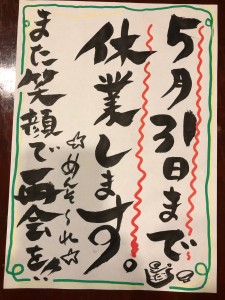 5月31日まで
休業します。
☆めんそ〜れ☆
また笑顔で再会を!!